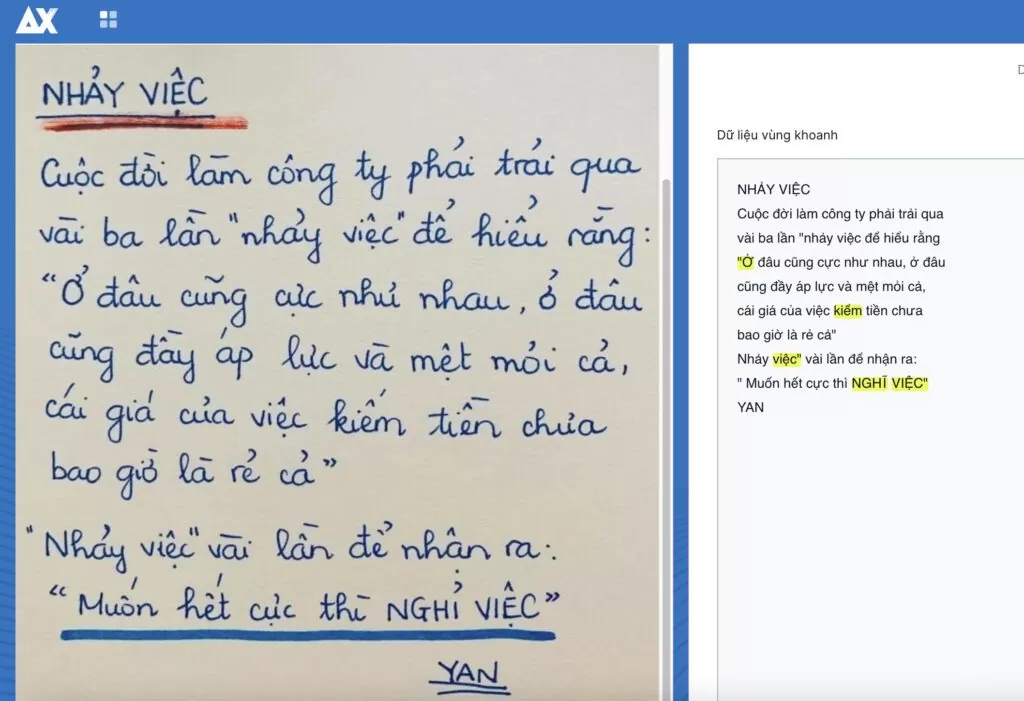 AX
NHẢY VIỆC
Cuộc đời làm công ty phải trải qua
vài ba lần "nhảy việc" để hiểu rằng:
"Ở đâu cũng cực như nhau, ở đâu
cũng đầy áp lực và mệt mỏi cả,
cái giá của việc kiếm tiền chưa
bao giờ là rẻ cả"
"Nhảy việc" vài lần để nhận ra:
"Muốn hết cực thì NGHỈ VIỆC"
YAN
D
Dữ liệu vùng khoanh
NHẢY VIỆC
Cuộc đời làm công ty phải trải qua
vài ba lần "nhảy việc để hiểu rằng
"Ở đâu cũng cực như nhau, ở đâu
cũng đầy áp lực và mệt mỏi cả,
cái giá của việc kiểm tiền chưa
bao giờ là rẻ cả"
Nhảy việc" vài lần để nhận ra:
" Muốn hết cực thì NGHĨ VIỆC"
YAN